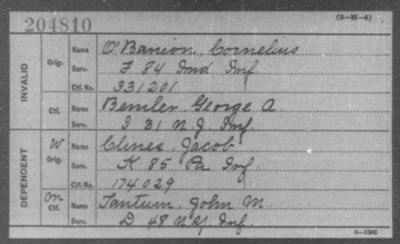 204810
(3-3E-6)
INVALID
Orig. Name O'Banion, Cornelius
Serv. F 84 Ind Inf
Ctf. No. 331201
Ctf. Name Bemler George A
Serv. I 31 N.J. Inf.
DEPENDENT
W Orig. Name Clines, Jacob
Serv. K 85 Pa Inf.
Ctf. No. 174029
On Ctf. Name Tantum, John M.
Serv. D 48 N.Y. Inf.